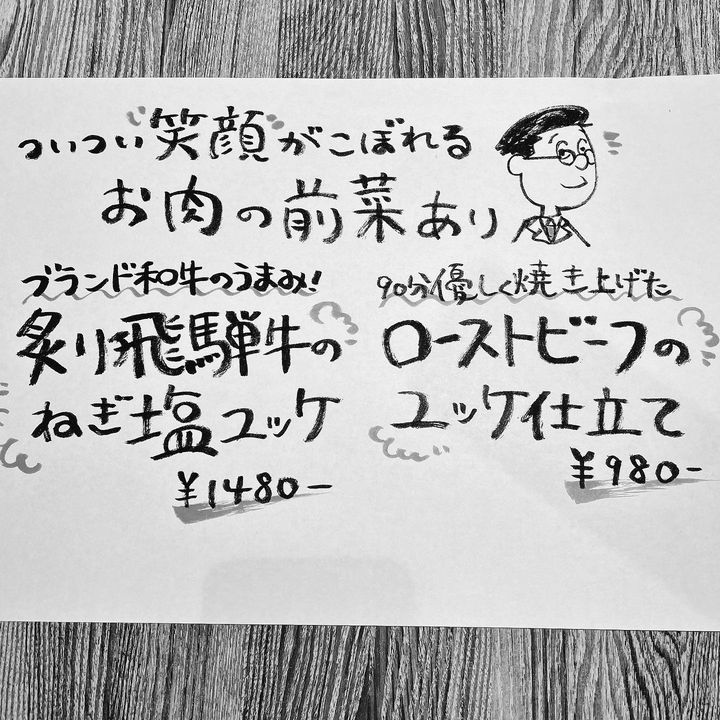 ついつい"笑顔"がこぼれる
お肉の前菜あり
ブランド和牛のうまみ!
炙り飛騨牛の
ねぎ塩ユッケ
¥1480-
90分優しく焼き上げた
ローストビーフの
ユッケ仕立て
¥980-